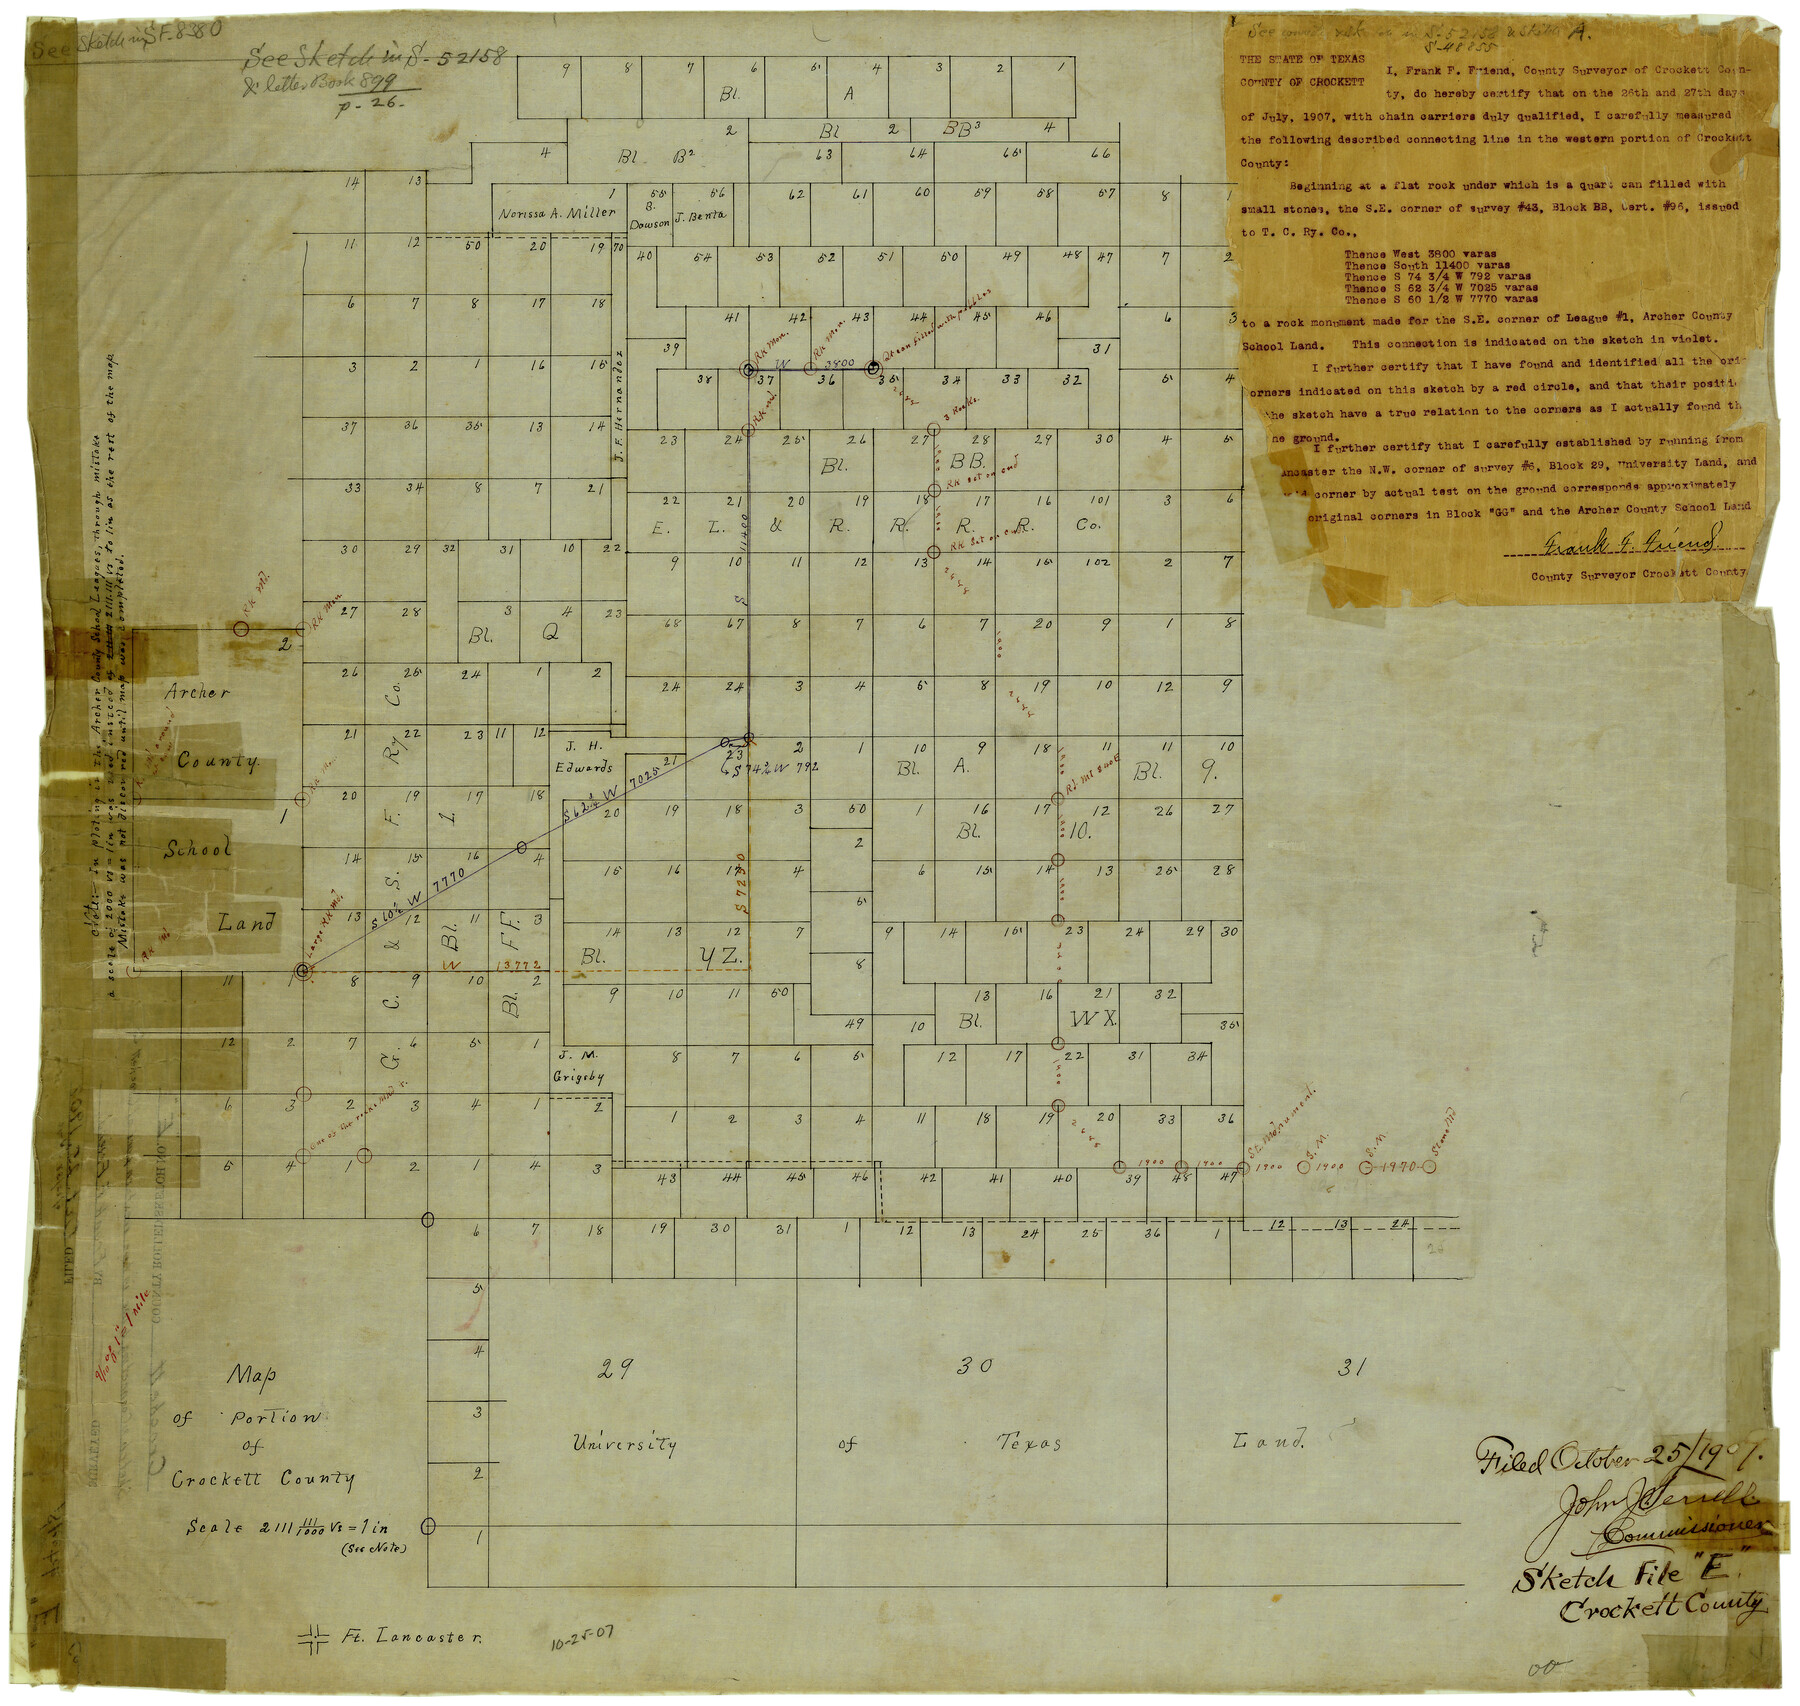 See Sketch in SF-8380
See Sketch in S-52158
& letter Book 899
p-26-
A.
S-48855
THE STATE OF TEXAS
COUNTY OF CROCKETT
I, Frank F. Friend, County Surveyor of Crockett Coun-
ty, do hereby certify that on the 26th and 27th days
of July, 1907, with chain carriers duly qualified, I carefully measured
the following described connecting line in the western portion of Crockett
County:
Beginning at a flat rock under which is a quart can filled with
small stones, the S.E. corner of survey #43, Block BB, Cert. #96, issued
to T. C. Ry. Co.,
Thence West 3800 varas
Thence South 11400 varas
Thence S 74 3/4 W 792 varas
Thence S 62 3/4 W 7025 varas
Thence S 60 1/2 W 7770 varas
to a rock monument made for the S.E. corner of League #1, Archer County
School Land. This connection is indicated on the sketch in violet.
I further certify that I have found and identified all the ori
orners indicated on this sketch by a red circle, and that their positi
the sketch have a true relation to the corners as I actually found th
ne ground.
I further certify that I carefully established by running from
ancaster the N.W. corner of survey #6, Block 29, University Land, and
corner by actual test on the ground corresponds approximately
original corners in Block "GG" and the Archer County School Land
Frank F. Friend
County Surveyor Crockett County
9 8 7 6 5 4 3 2 1
Bl. A
2 Bl 2 BB3 4
4 Bl. B2 63 64 65 66
14 13 1 55 56 62 61 60 59 58 57 8 1
Norissa A. Miller
B. Dawson
J. Benta
11 12 50 20 19 70 40 54 53 52 51 50 49 48 47 7 2
6 7 8 17 18 41 42 43 44 45 46 6 3
Rk Mon.
Rk Mon.
Qt can filled with pebbles
W 3800
39 31
3 2 1 16 15 38 37 36 35 34 33 32 5 4
J. F. Hernandez
Rk Md.
3 Rocks
37 36 35 13 14 23 24 25 26 27 28 29 30 4 5
Bl. BB.
Rk set on end
33 34 8 7 21 22 21 20 19 18 17 16 101 3 6
E. L. & R. R. R. R. Co.
S 11400
Rk Set on end
30 29 32 31 10 22 9 10 11 12 13 14 15 102 2 7
Rk Md.
Rk Mon
2 27 28 3 4 23 68 67 8 7 6 7 20 9 1 8
Bl. Q
26 25 24 1 2 24 24 3 4 5 8 19 10 12 9
Archer
County
School
Land
21 22 23 11 12 23 2 1 10 9 18 11 11 10
J. H.
Edwards
21
S 74¾ W 792
S 62¾ W 7025
Bl. A. Bl. 9.
1 20 19 17 18 20 19 18 3 50 1 16 17 12 26 27
Bl. 10.
2
14 15 16 4 15 16 17 4 6 15 14 13 25 28
S 60½ W 7770
S 7230
5
Large Rk Md.
13 12 11 3 14 13 12 7 9 14 15 23 24 29 30
G. C. & S. F. Ry Co.
Bl. 1.
Bl. FF.
Bl. YZ.
W 13772
8
11 1 8 9 10 2 9 10 11 50 13 16 21 32
49 10 Bl. WX. 35
12 2 7 6 5 1 8 7 6 5 12 17 22 31 34
J. M.
Grigsby
6 3 2 3 4 1 2 1 2 3 4 11 18 19 20 33 36
St. Monument.
S. M.
S. M
Stone Md
1900 1900 1900 1900 1970
5 4 1 2 1 4 3 43 44 45 46 42 41 40 39 48 47
6 7 18 19 30 31 1 12 13 24 25 36 1 12 13 24
25
5
4
3
2
1
29 30 31
University of Texas Land.
a scale of 2000 vs = 1 in was used instead of 2111.111 vs to 1 in as the rest of the map
Mistake was not discovered until map was completed.
9/10 of 1" = 1 mile
Map
of Portion
of
Crockett County
Scale 2111 111/1000 Vs = 1 in
(See Note)
Ft. Lancaster.
10-25-07
Filed October 25/1907.
John J Terrell
Commissioner
Sketch File "E"
Crockett County